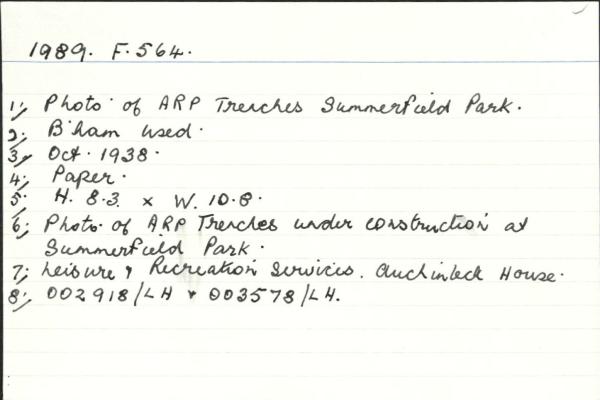 1989. F.564.
1; Photo of ARP Trenches Summerfield Park.
2; B'ham used.
3; Oct. 1938.
4; Paper.
5; H. 8.3. x W. 10.8.
6; Photo. of ARP Trenches under construction at
Summerfield Park.
7; Leisure & Recreation Services. Auchinleck House.
8; 002918/LH & 003578/LH.